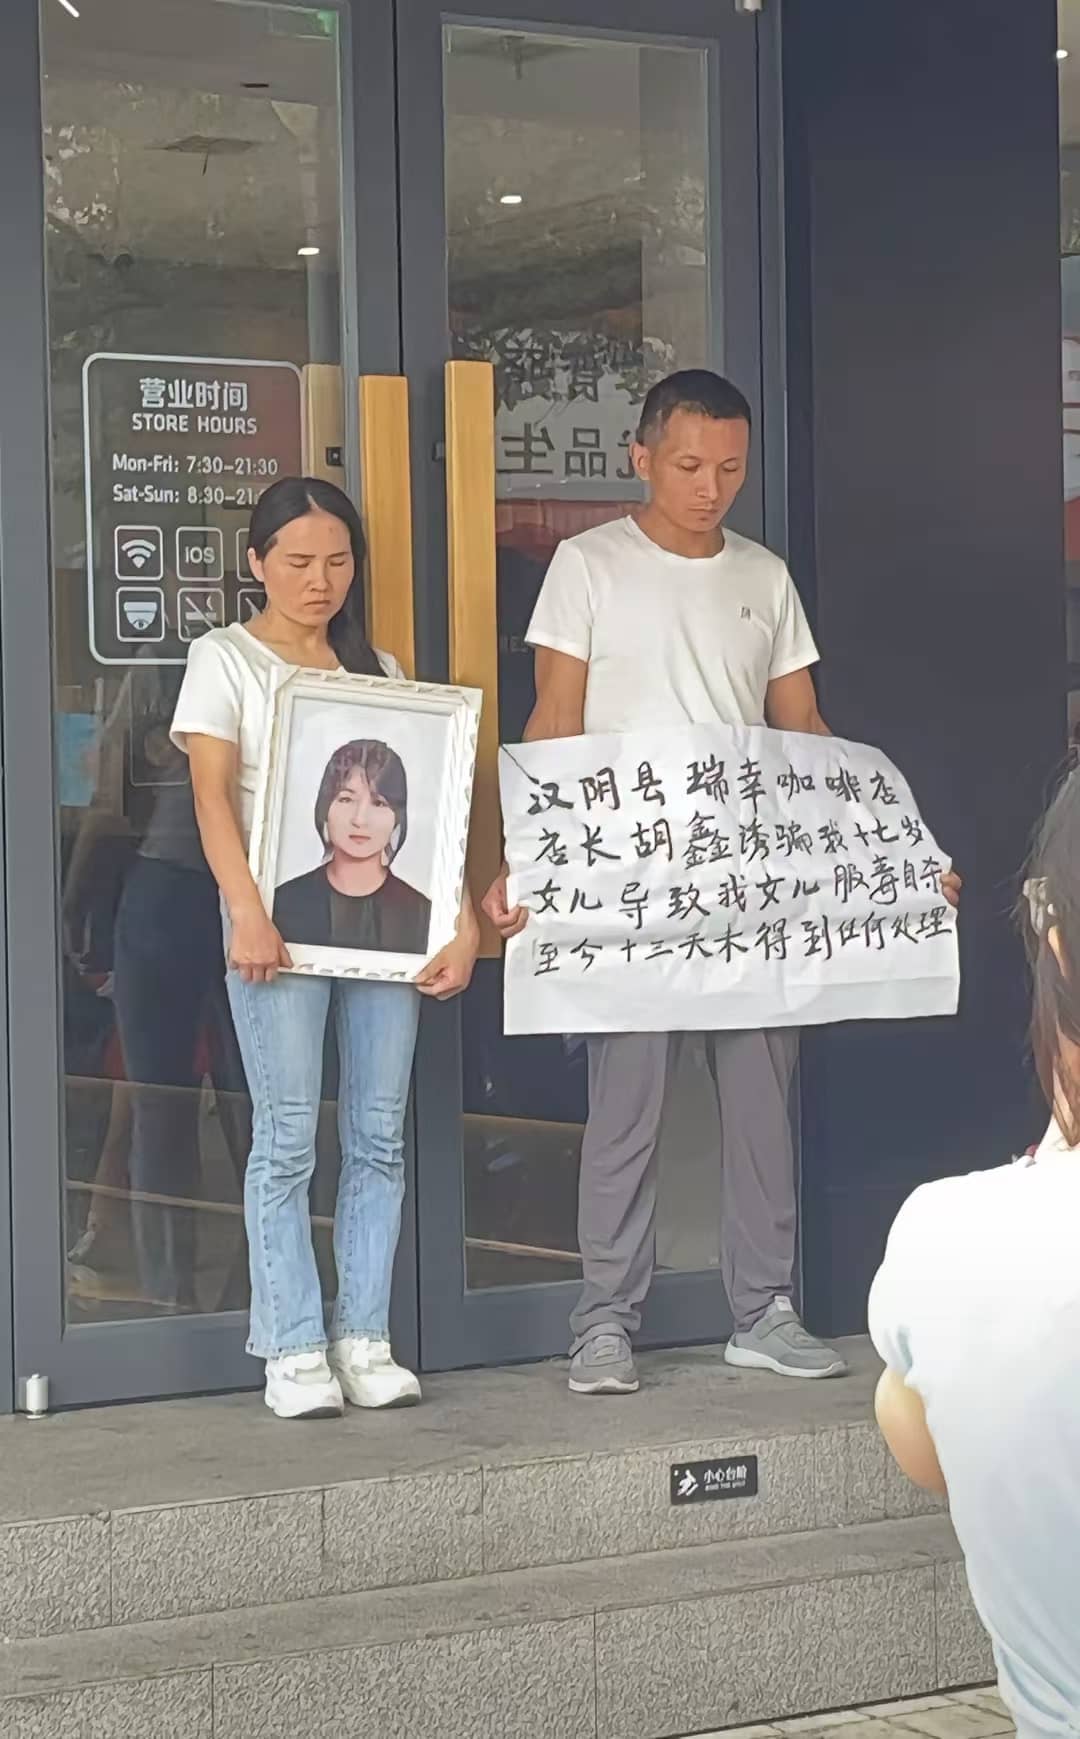 营业时间
STORE HOURS
Mon-Fri: 7:30-21:30
Sat-Sun: 8:30-21
iOS
汉阴县瑞幸咖啡店
店长胡鑫诱骗我十七岁
女儿导致我女儿服毒自杀
至今十三天未得到任何处理
小心台阶